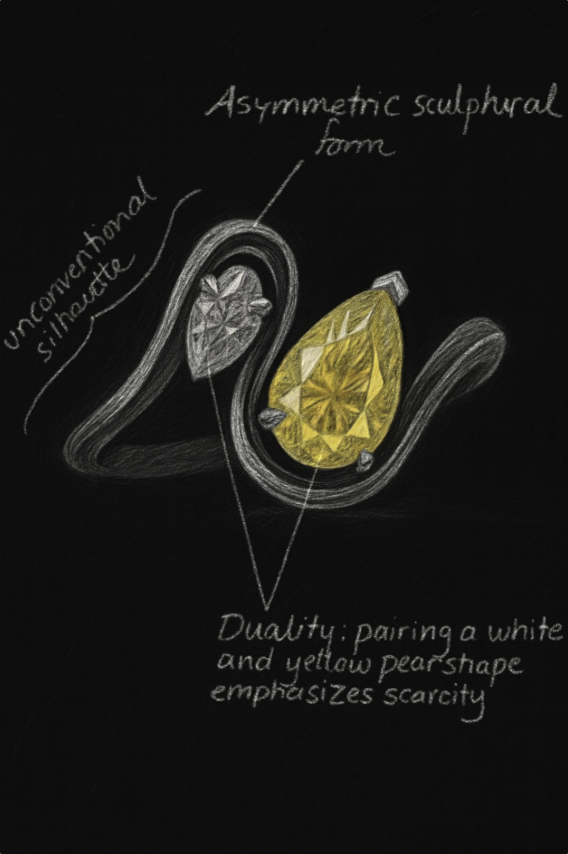 Asymmetric sculptural
form
unconventional
silhouette
Duality: pairing a white
and yellow pearshape
emphasizes scarcity